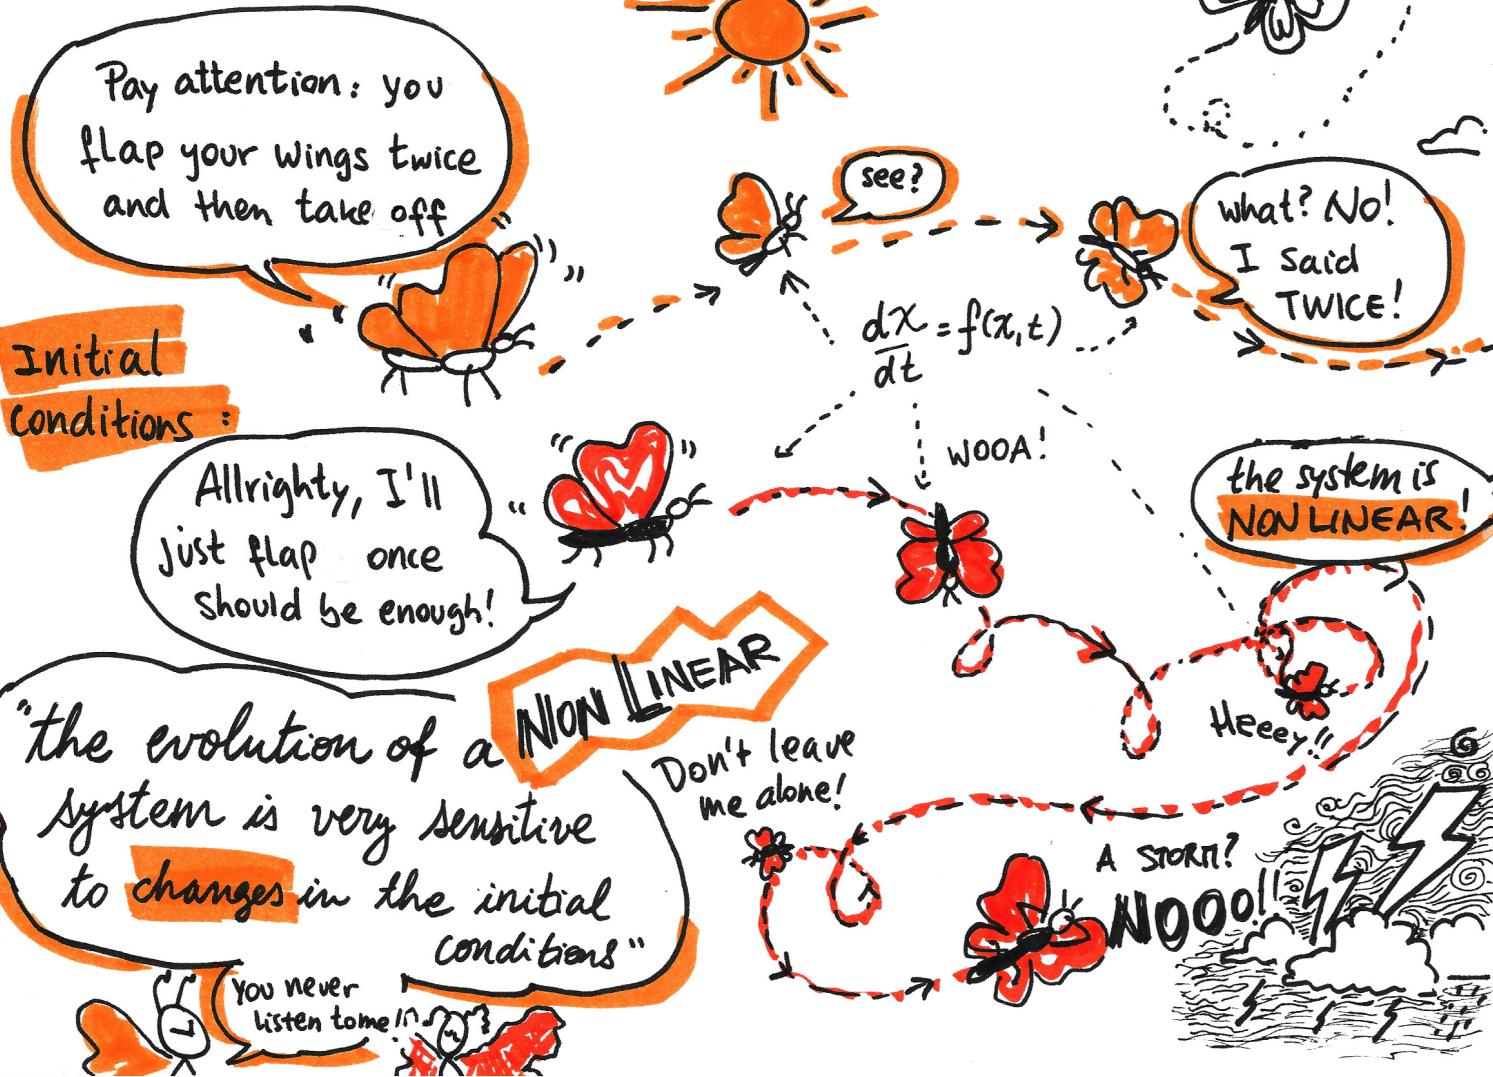 Pay attention: you
flap your wings twice
and then take off
see?
what? No!
I said
TWICE!
Initial
conditions:
dx/dt = f(x,t)
Allrighty, I'll
just flap once
should be enough!
WOOA!
the system is
NON LINEAR!
"the evolution of a NON LINEAR
system is very sensitive
to changes in the initial
conditions"
Heeey!!
Don't leave
me alone!
A STORM?
NOOO!!
You never
listen to me!!